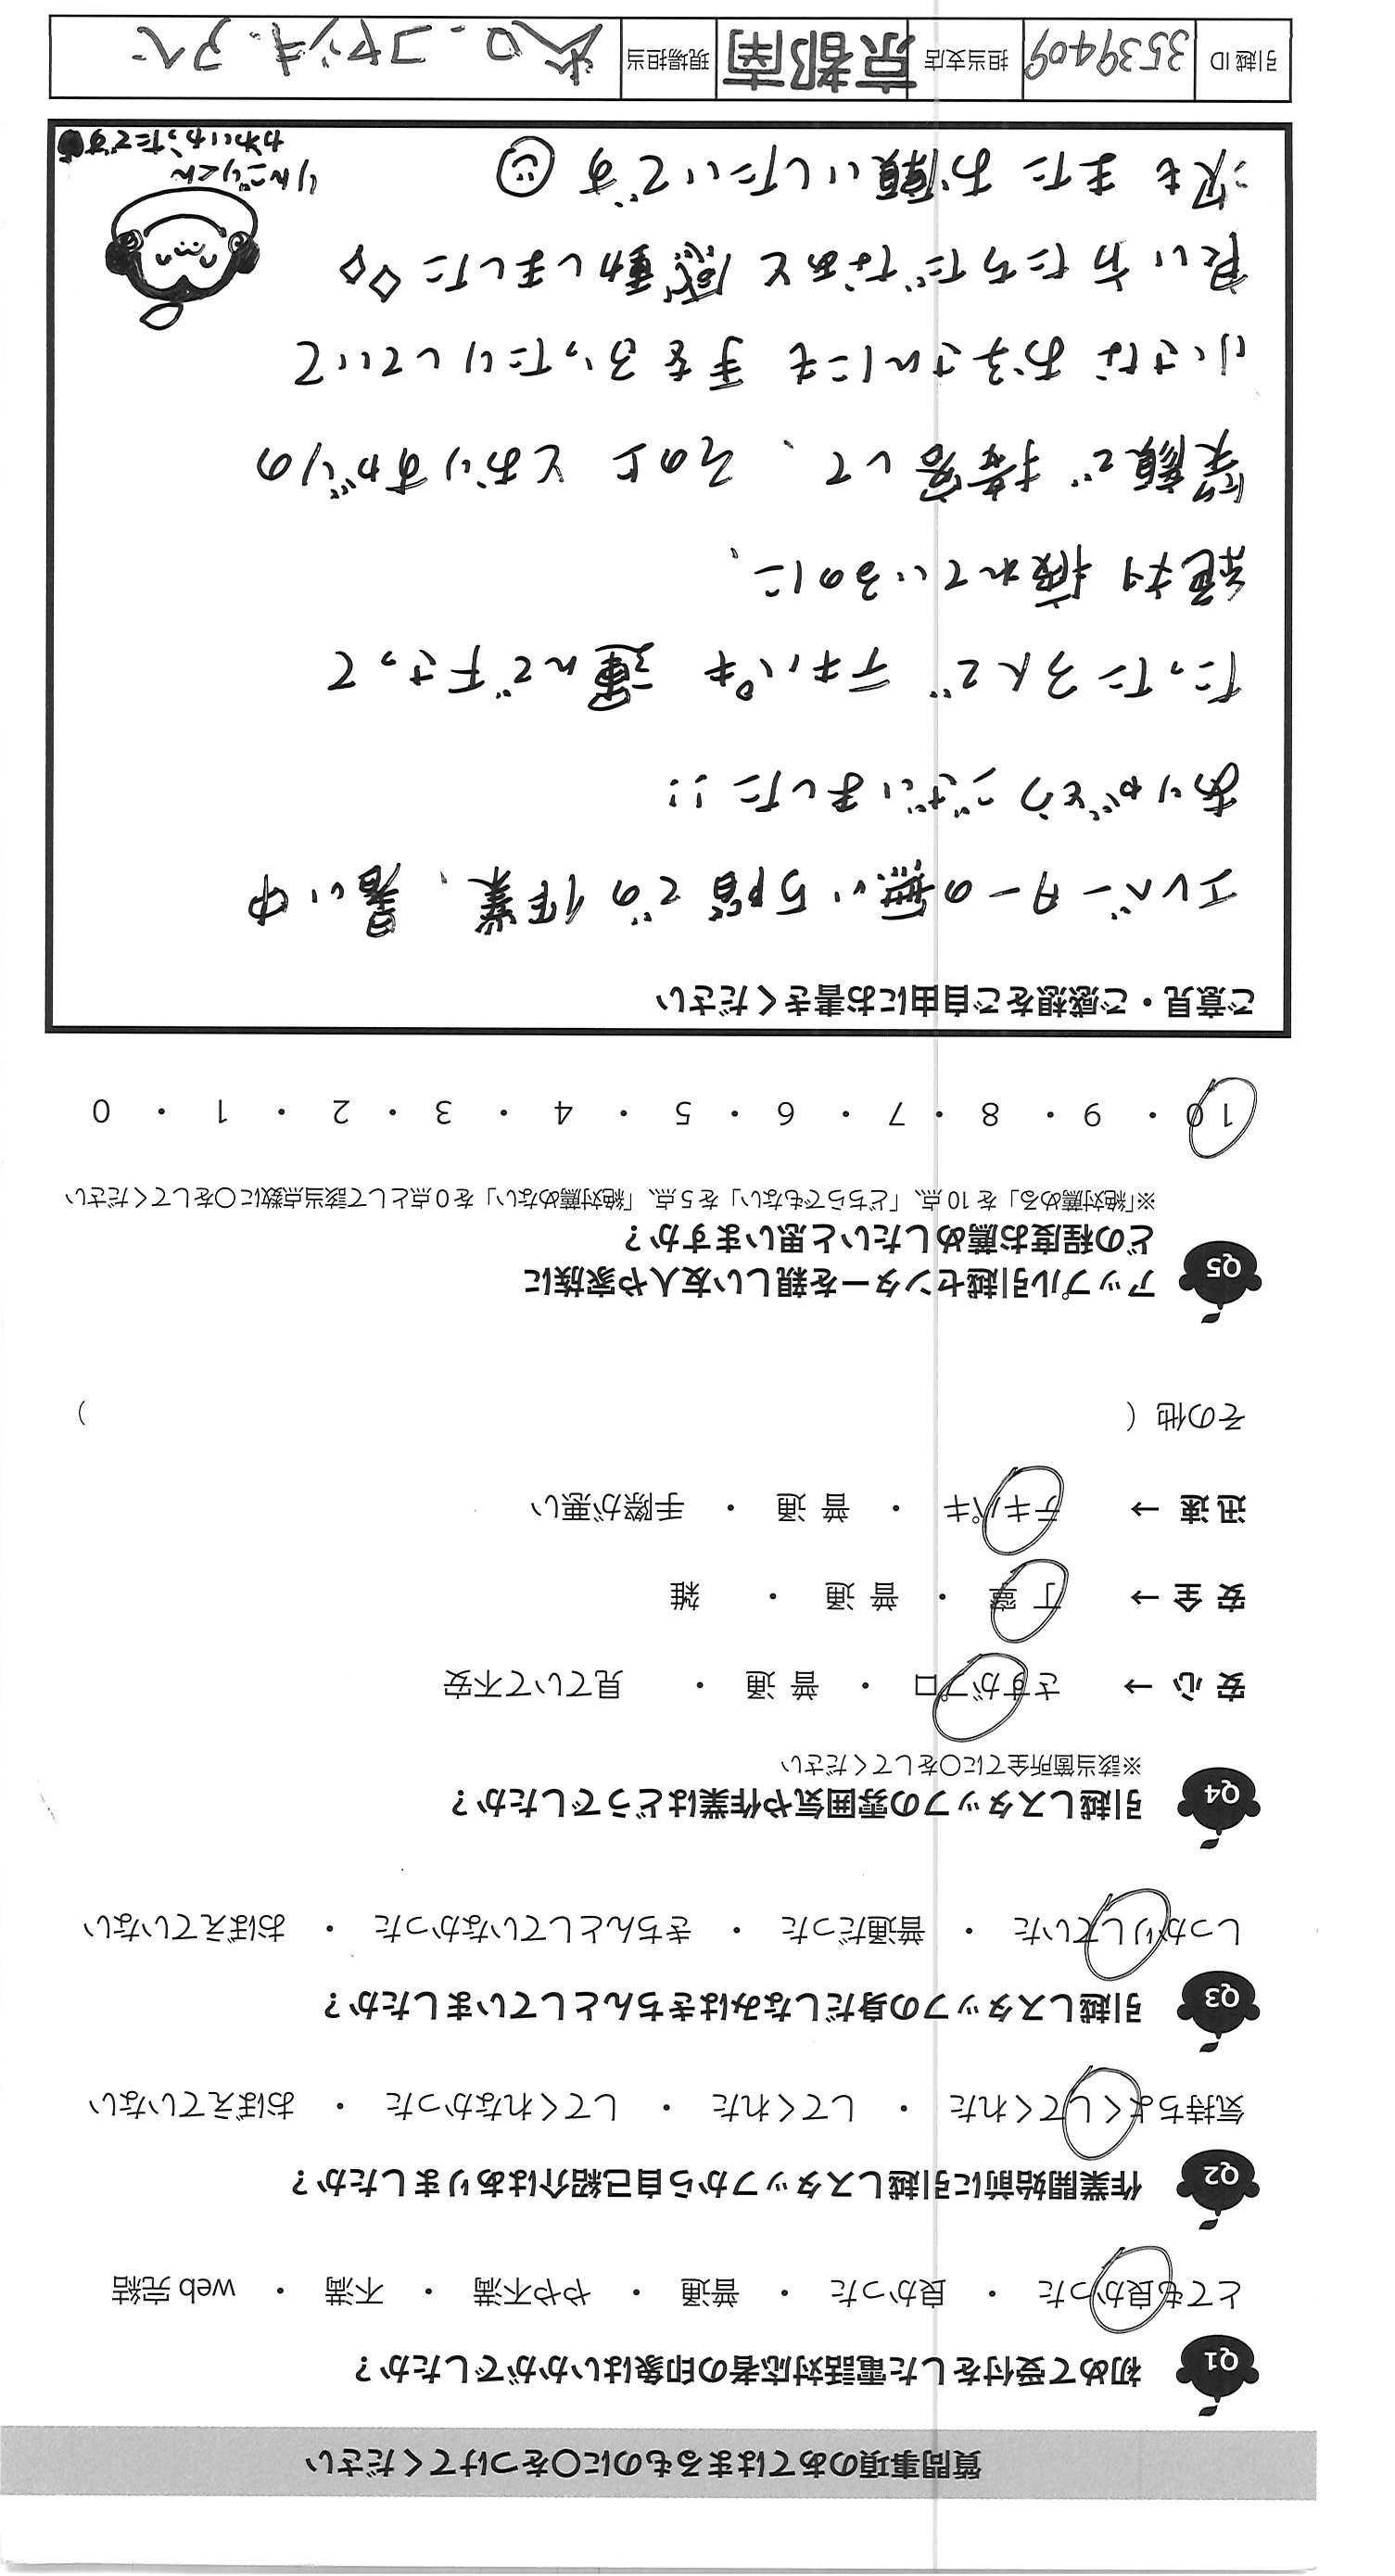 質問事項のあてはまるものに○をつけてください
Q1 初めて受付をした電話対応者の印象はいかがでしたか？
とても良かった ・ 良かった ・ 普通 ・ やや不満 ・ 不満 ・ web 完結
Q2 作業開始前に引越しスタッフから自己紹介はありましたか？
気持ちよくしてくれた ・ してくれた ・ してくれなかった ・ おぼえていない
Q3 引越しスタッフの身だしなみはきちんとしていましたか？
しっかりしていた ・ 普通だった ・ きちんとしていなかった ・ おぼえていない
Q4 引越しスタッフの雰囲気や作業はどうでしたか？
※該当箇所全てに○をしてください
安 心 → さすがプロ ・ 普 通 ・ 見ていて不安
安 全 → 丁 寧 ・ 普 通 ・ 雑
迅 速 → テキパキ ・ 普 通 ・ 手際が悪い
その他（ ）
Q5 アップル引越センターを親しい友人や家族に
どの程度お薦めしたいと思いますか？
※「絶対薦める」を 10 点、「どちらでもない」を 5 点、「絶対薦めない」を 0 点として該当点数に○をしてください
10 ・ 9 ・ 8 ・ 7 ・ 6 ・ 5 ・ 4 ・ 3 ・ 2 ・ 1 ・ 0
ご意見・ご感想をご自由にお書きください
エレベーターの無い5階での作業、暑い中
ありがとうございました!!
たった3人で テキパキ 運んで下さって
絶対疲れているのに、
笑顔で接客して、その上 とおりすがりの
小さなお子さんにも 手をふったりしていて
良い方たちだなぁと感動しました◇◇
次も また お願いしたいです
りんごりくん
かわいかったです
引越 ID 3539409 担当支店 京都南 現場担当 大口. コヤシキ. アベ